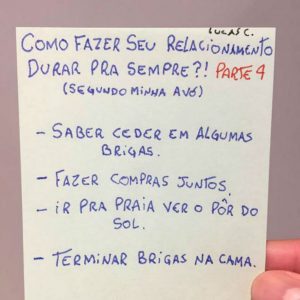 LUCAS C.
COMO FAZER SEU RELACIONAMENTO
DURAR PRA SEMPRE?! PARTE 4
(SEGUNDO MINHA AVÓ)
- SABER CEDER EM ALGUMAS
BRIGAS.
- FAZER COMPRAS JUNTOS.
- IR PRA PRAIA VER O PÔR DO
SOL.
- TERMINAR BRIGAS NA CAMA.